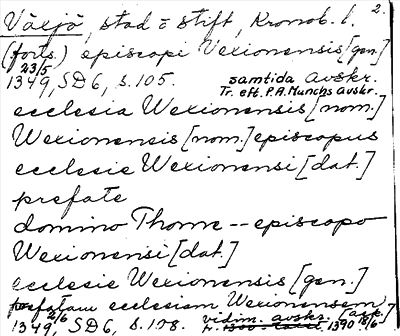 Växjö, stad o stift, Kronob. l. 2.
(forts.) episcopi Wexionensis [gen.]
23/5
1349, SD6, s. 105. samtida avskr.
Tr. eft. P.A. Munchs avskr.
ecclesia Wexionensis [nom.]
Wexionensis [nom.] episcopus
ecclesie Wexionensi [dat.]
prefate
domino Thome -- episcopo
Wexionensi [dat.]
ecclesie Wexionensis [gen.]
prefatam ecclesiam Wexionensem [ack.]
2/6
1349, SD6, s. 108. vidim. avskr. 1390 18/6